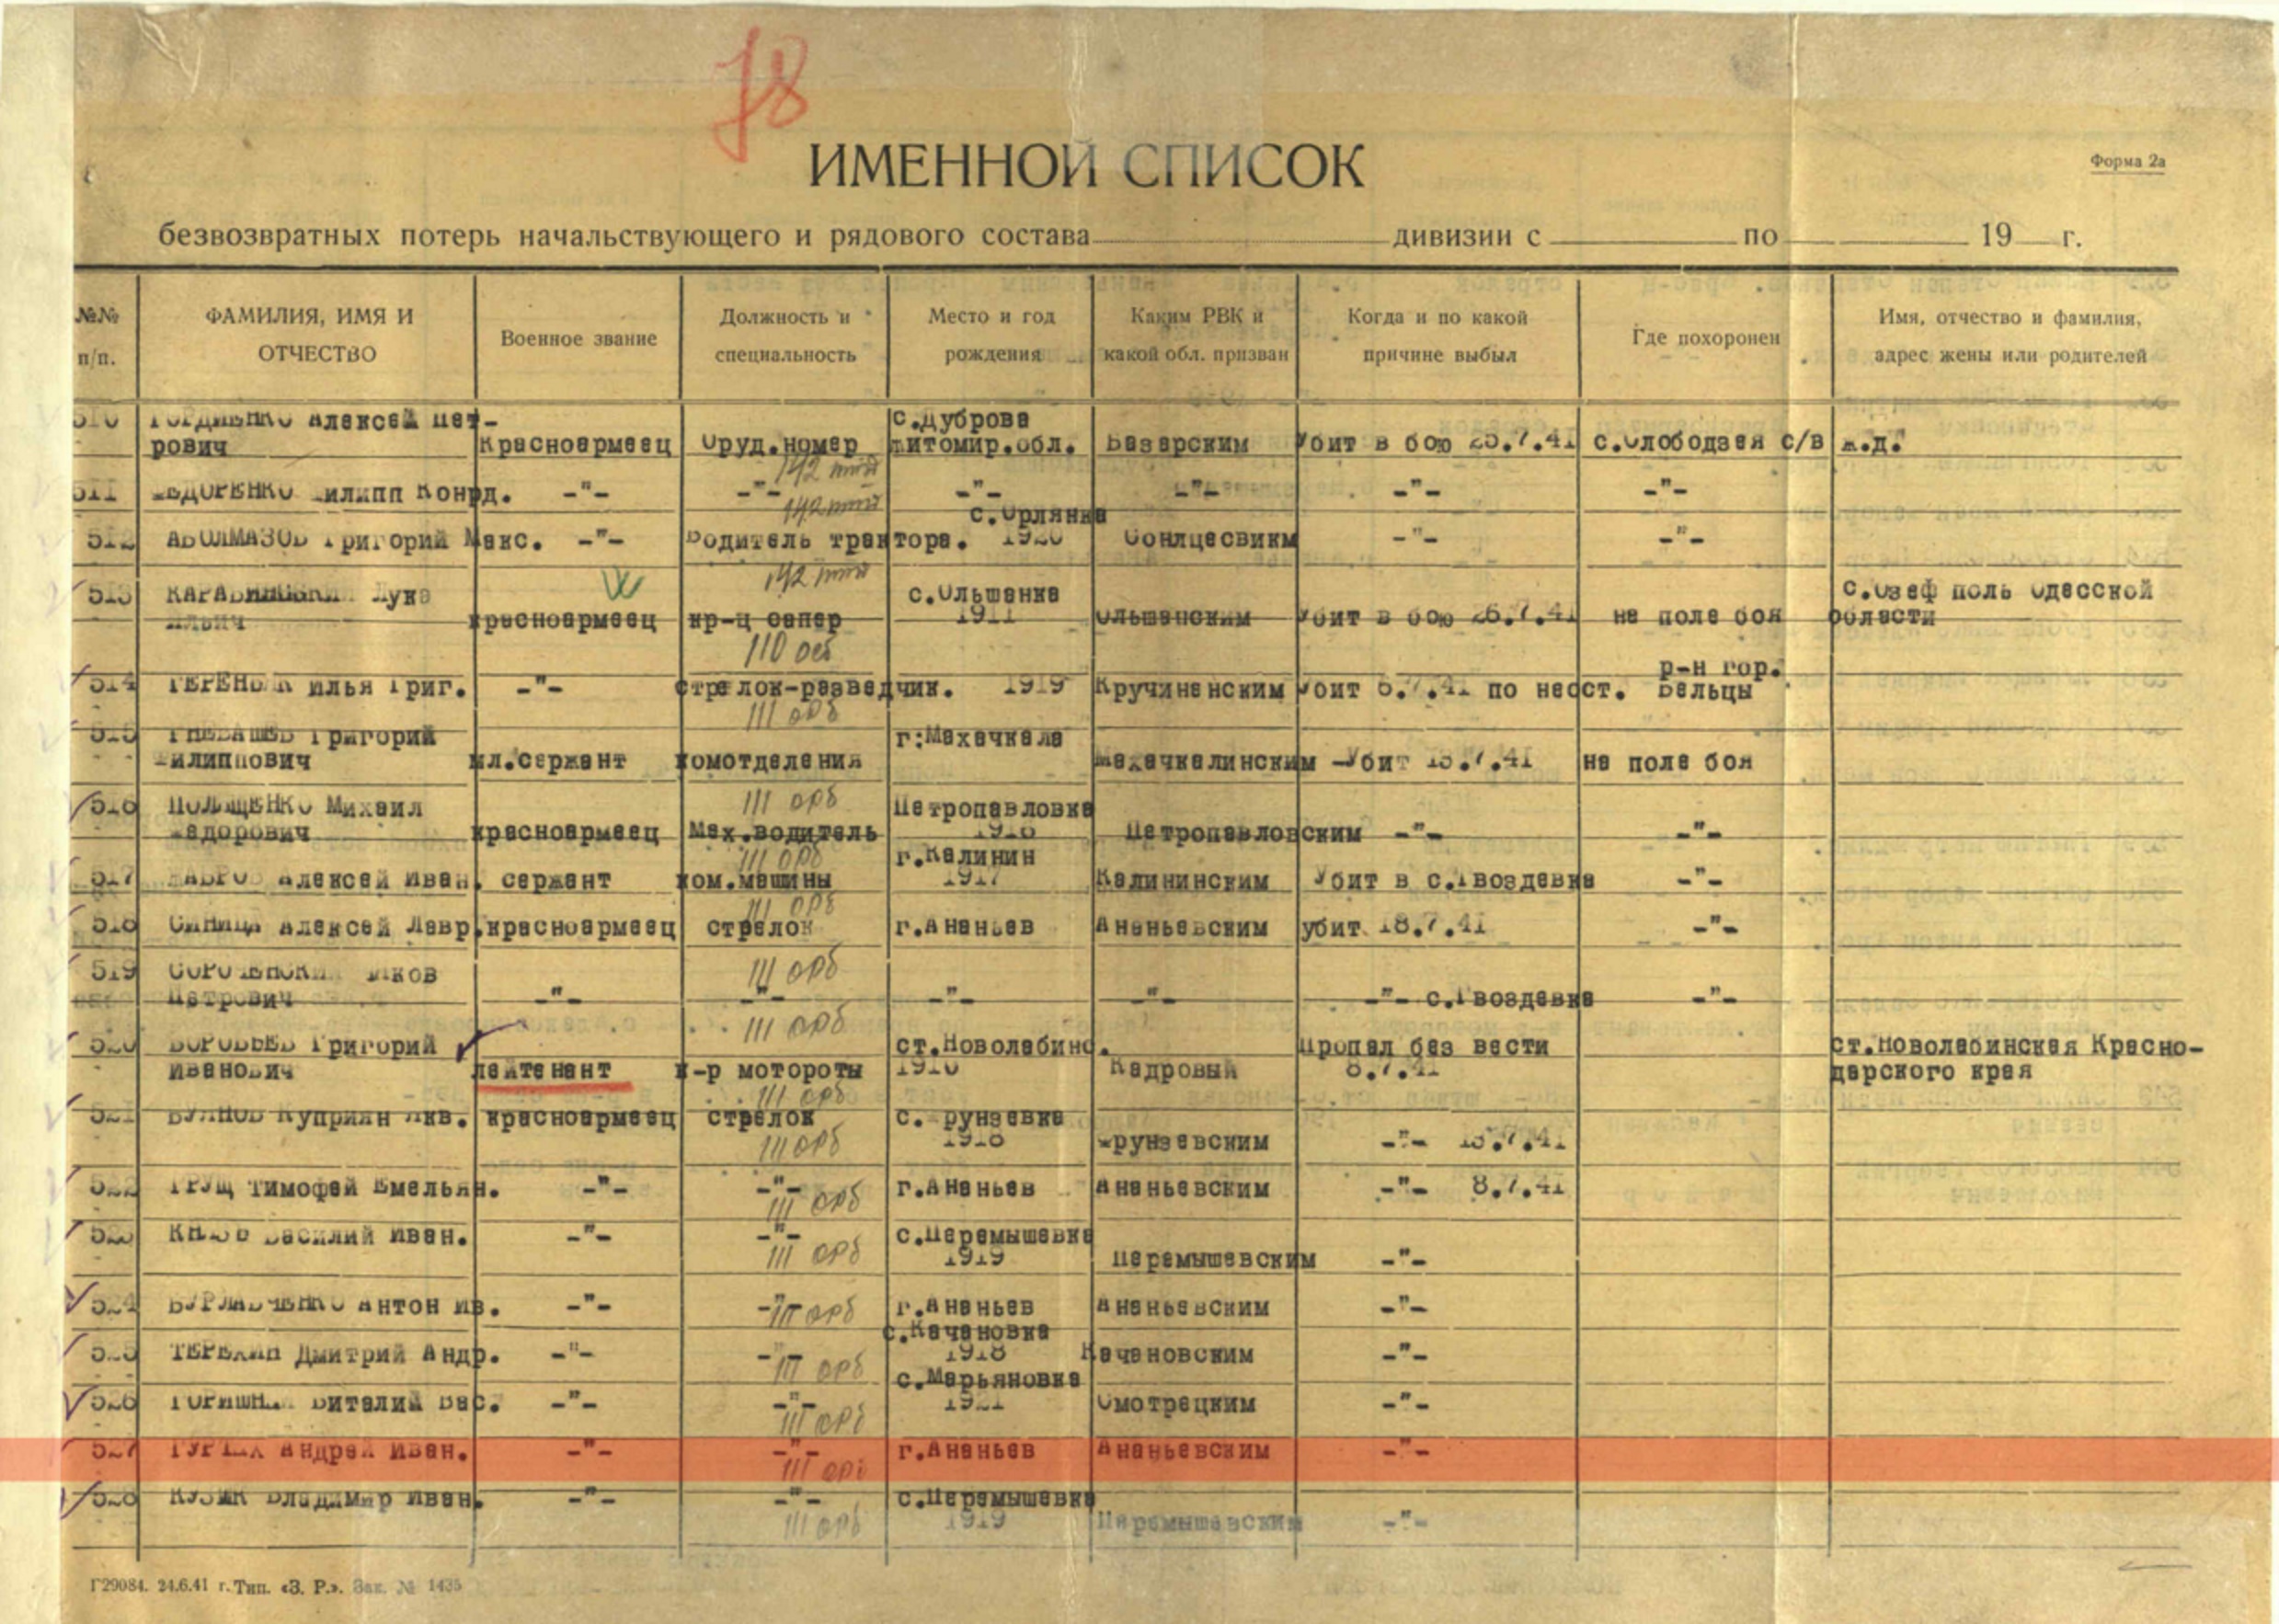 78
ИМЕННОЙ СПИСОК
Форма 2а
безвозвратных потерь начальствующего и рядового состава дивизии с по 19 г.
№№ п/п.
ФАМИЛИЯ, ИМЯ И ОТЧЕСТВО
Военное звание
Должность и специальность
Место и год рождения
Каким РВК и какой обл. призван
Когда и по какой причине выбыл
Где похоронен
Имя, отчество и фамилия, адрес жены или родителей
510 ГОРДИЕНКО Алексей Пет- с.Дуброва
рович Красноармеец Оруд.номер Житомир.обл. Базарским Убит в бою 25.7.41 с.Слободзея с/в ж.д.
142
511 ФЕДОРЕНКО Филипп Конрд. -"- -"- -"- -"- -"- -"-
142 с.Орлянка
512 АБОЛМАЗОВ Григорий Макс. -"- Водитель трактора. 1920 -"- -"-
142
513 Лука с.Ольшанка с.Озеф поль Одесской
Ильич красноармеец кр-ц сапер 1911 Ольшанским Убит в бою 26.7.41 на поле боя области
110
р-н гор.
514 Илья Григ. -"- стрелок-разведчик. 1919 Кручиненским Убит по неост. Бельцы
111 орб
515 Григорий г:Махачкала
Филиппович мл.сержант комотделения Махачкалинским -Убит 13.7.41 на поле боя
111 орб
516 Михаил Петропавловка
Федорович красноармеец Мех.водитель 1918 Петропавловским -"- -"-
111 орб г.Калинин
517 Алексей Иван. сержант ком.машины 1917 Калининским Убит в с.Гвоздевка -"-
111 орб
518 СИНИЦА Алексей Лавр. красноармеец стрелок г.Ананьев Ананьевским убит 18.7.41 -"-
111 орб
519 Яков
Петрович -"- -"- -"- -"- -"- с.Гвоздевка -"-
111 орб
520 ВОРОБЬЕВ Григорий ст.Новолабинс. Пропал без вести ст.Новолабинская Красно-
Иванович лейтенант к-р мотороты 1910 Кадровый 8.7.41 дарского края
111 орб
521 БУЯНОВ Куприян Якв. красноармеец стрелок с.Фрунзевка
111 орб 1918 Фрунзевским -"- 13.7.41
522 ГРУЩ Тимофей Емельян. -"- -"- г.Ананьев Ананьевским -"- 8.7.41
111 орб
523 Василий Иван. -"- -"- с.Перемышевка
111 орб 1919 Перемышевским -"-
524 БУРЛАЧЕНКО Антон Ив. -"- -"- г.Ананьев Ананьевским -"-
111 орб с.Качановка
525 ТЕРЕХИН Дмитрий Андр. -"- -"- 1918 Качановским -"-
111 орб с.Марьяновка
526 Виталий Вас. -"- -"- 1921 Смотрецким -"-
111 орб
527 Андрей Иван. -"- -"- г.Ананьев Ананьевским -"-
111 орб
528 КУЗМИК Владимир Иван. -"- -"- с.Перемышевка
111 орб 1919 Перемышевским -"-
Г29084. 24.6.41 г. Тип. «З. Р.». Зак. № 1435